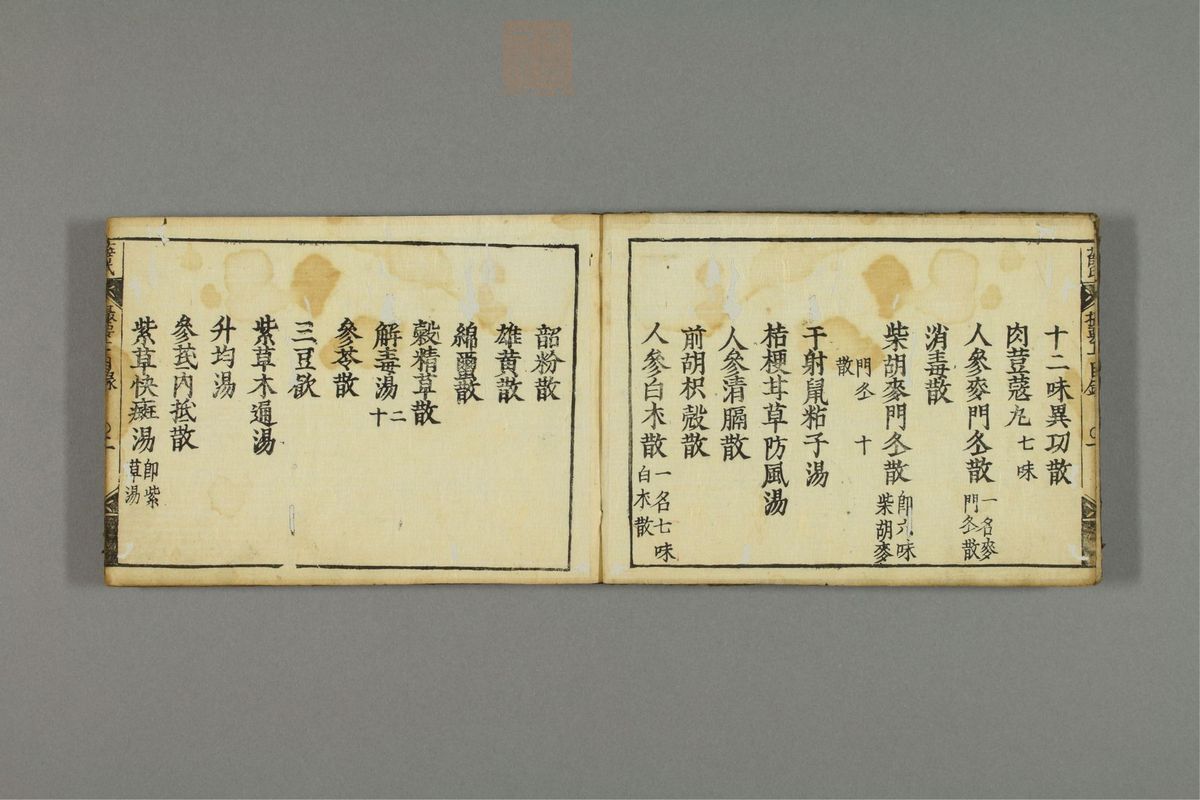 十二味異功散
肉荳蔻丸 七味
人參麥門冬散 一名麥門冬散
消毒散
柴胡麥門冬散 即六味柴胡麥門冬散 十
干射鼠粘子湯
桔梗甘草防風湯
人參清膈散
前胡枳殼散
人參白朮散 一名七味白朮散
韶粉散
雄黄散
綿繭散
穀精草散
解毒湯 二十
參苓散
三豆飲
紫草木通湯
升均湯
參芪內托散
紫草快癍湯 即紫草湯